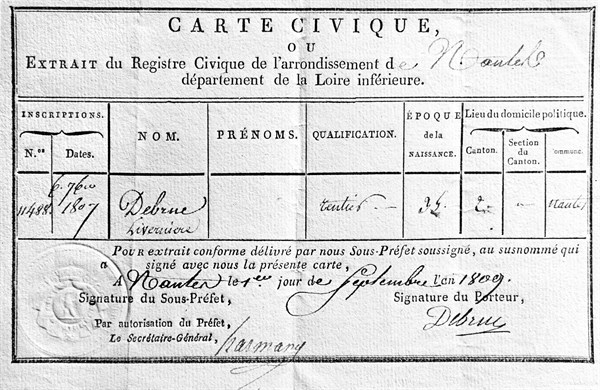 CARTE CIVIQUE,
OU
EXTRAIT du Registre Civique de l'arrondissement de Nantes
département de la Loire inférieure.
INSCRIPTIONS. NOM. PRÉNOMS. QUALIFICATION. ÉPOQUE de la NAISSANCE. Lieu du domicile politique.
N.os Dates. Canton. Section du Canton. Commune.
11488 1807 Debrue rentier 2. Nantes
POUR extrait conforme délivré par nous Sous-Préfet soussigné, au susnommé qui
a signé avec nous la présente carte,
A Nantes le 1er jour de Septembre l'an 1809.
Signature du Sous-Préfet, Signature du Porteur,
Par autorisation du Préfet, Debrue
Le Secrétaire-Général,